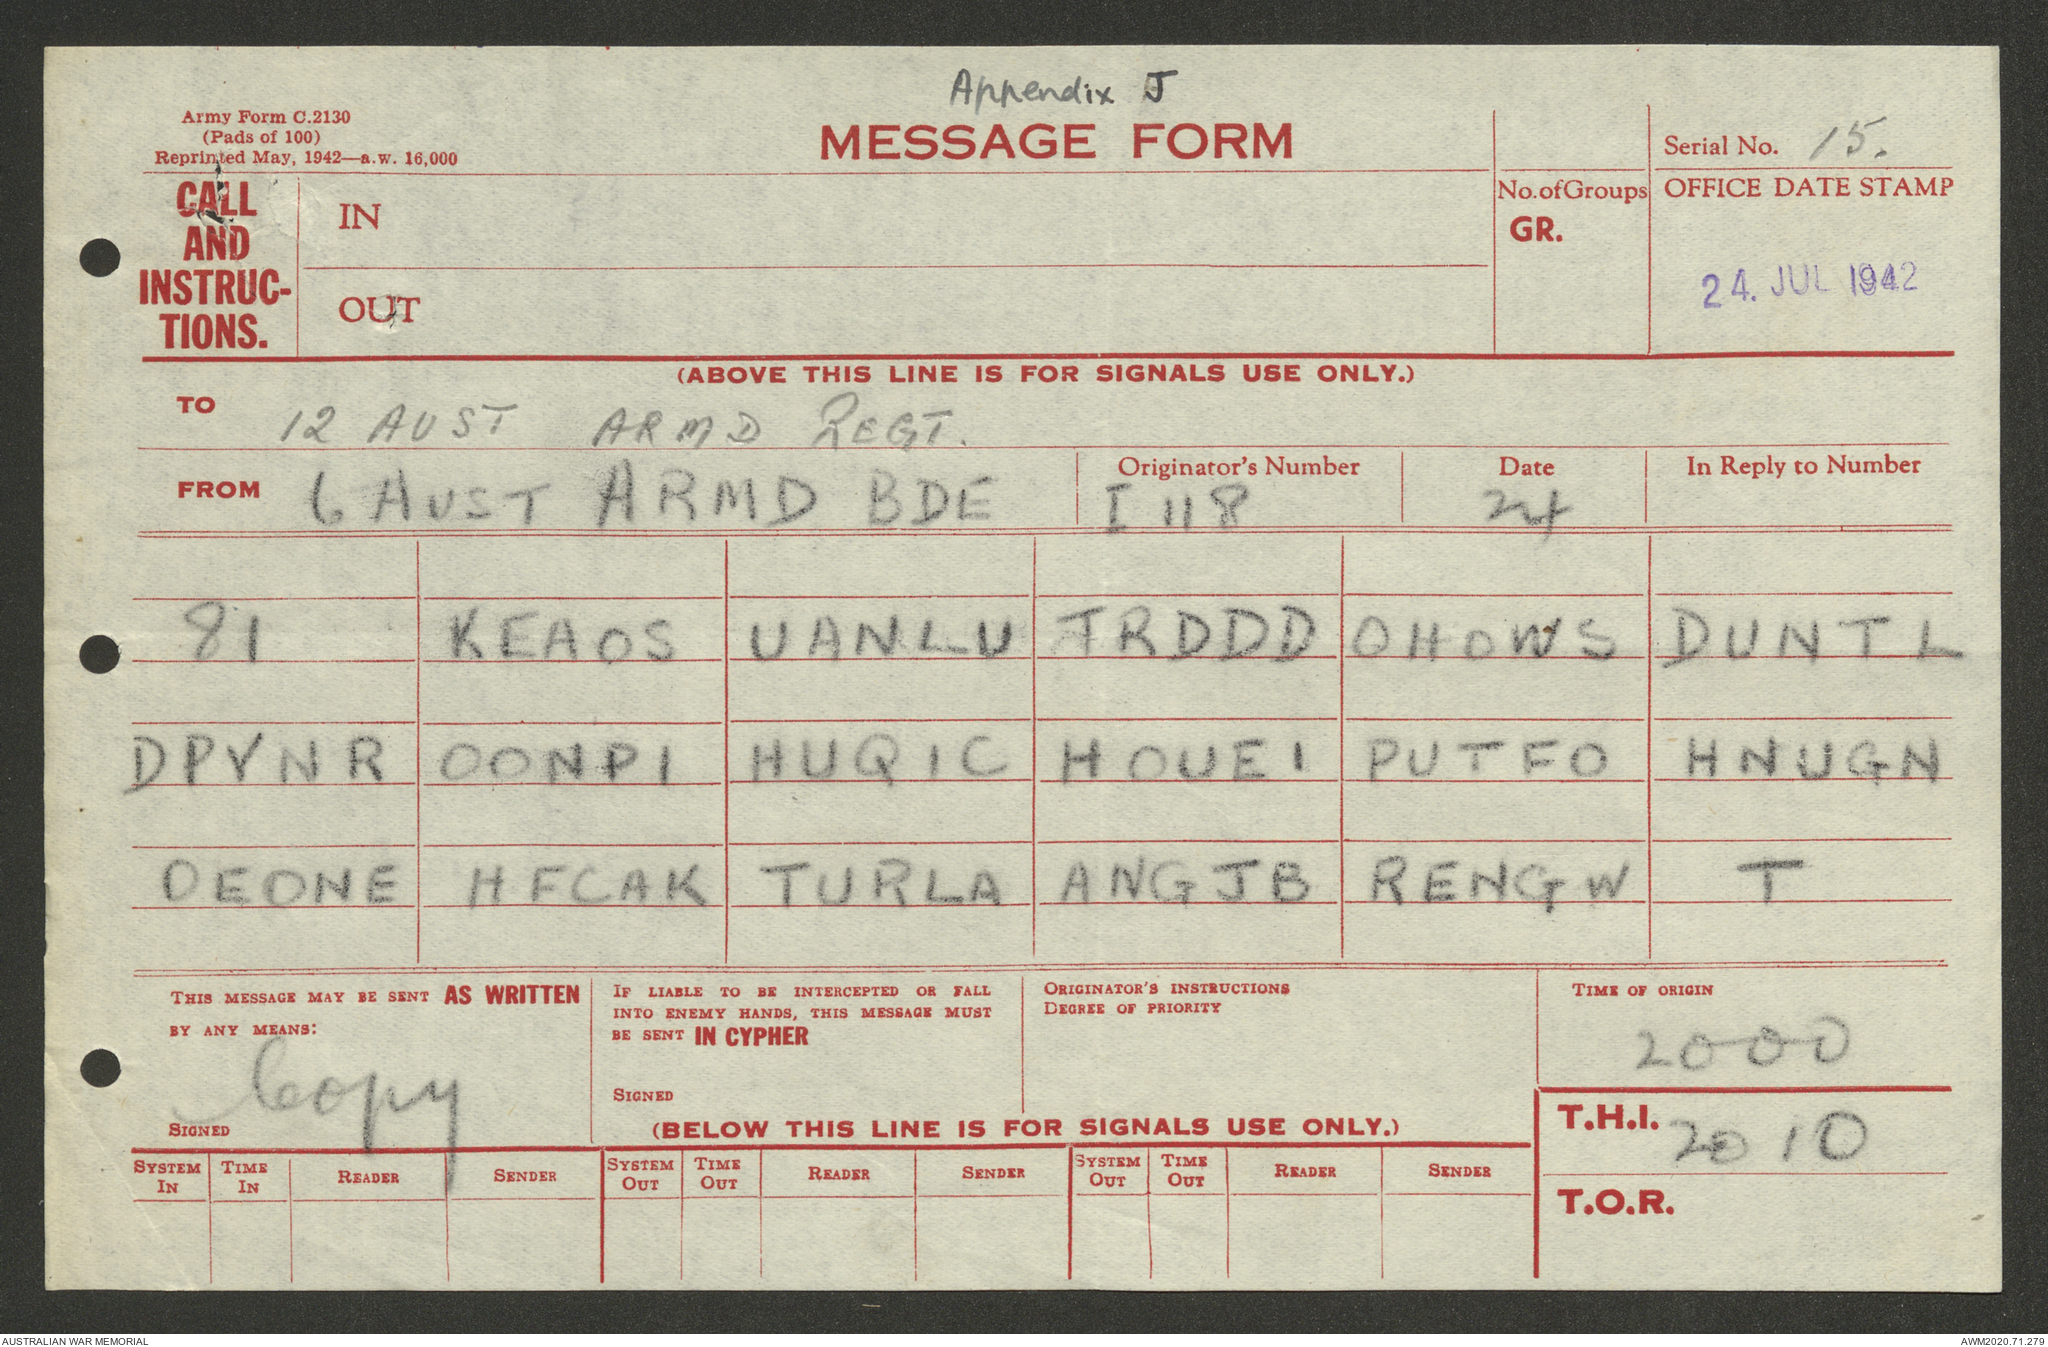 Appendix J
Army Form C.2130
(Pads of 100)
Reprinted May, 1942—a.w. 16,000
MESSAGE FORM
Serial No. 15.
CALL AND INSTRUC-TIONS.
IN
OUT
No.ofGroups
GR.
OFFICE DATE STAMP
24. JUL 1942
(ABOVE THIS LINE IS FOR SIGNALS USE ONLY.)
TO 12 AUST ARMD REGT.
FROM 6 AUST ARMD BDE
Originator's Number I 118
Date 24
In Reply to Number
81 KEAOS UANLU TRDDD OHOWS DUNTL
DPVNR OONPI HUQIC HOUEI PUTFO HNUGN
OEONE HFCAK TURLA ANGJB RENGW T
THIS MESSAGE MAY BE SENT AS WRITTEN
BY ANY MEANS:
Copy
SIGNED
IF LIABLE TO BE INTERCEPTED OR FALL
INTO ENEMY HANDS, THIS MESSAGE MUST
BE SENT IN CYPHER
SIGNED
ORIGINATOR'S INSTRUCTIONS
DEGREE OF PRIORITY
TIME OF ORIGIN
2000
(BELOW THIS LINE IS FOR SIGNALS USE ONLY.)
T.H.I. 2010
T.O.R.
SYSTEM IN TIME IN READER SENDER SYSTEM OUT TIME OUT READER SENDER SYSTEM OUT TIME OUT READER SENDER
AUSTRALIAN WAR MEMORIAL
AWM2020.71.279